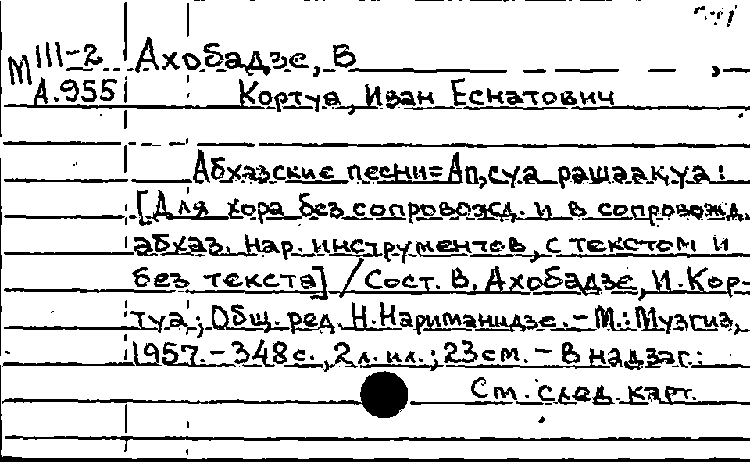 М III-2 Ахобадзе, В ,
А.955 Кортуа, Иван Еснатович
Абхазские песни=Аҧсуа рашәақуа:
[Для хора без сопровожд. и в сопровожд.
абхаз. нар. инструментов, с текстом и
без текста] / Сост. В. Ахобадзе, И. Кор-
туа; Общ. ред. Н. Нариманидзе. - М.: Музгиз,
1957. - 348 с., 2 л. ил.; 23 см. - В надзаг.:
См. след. карт.